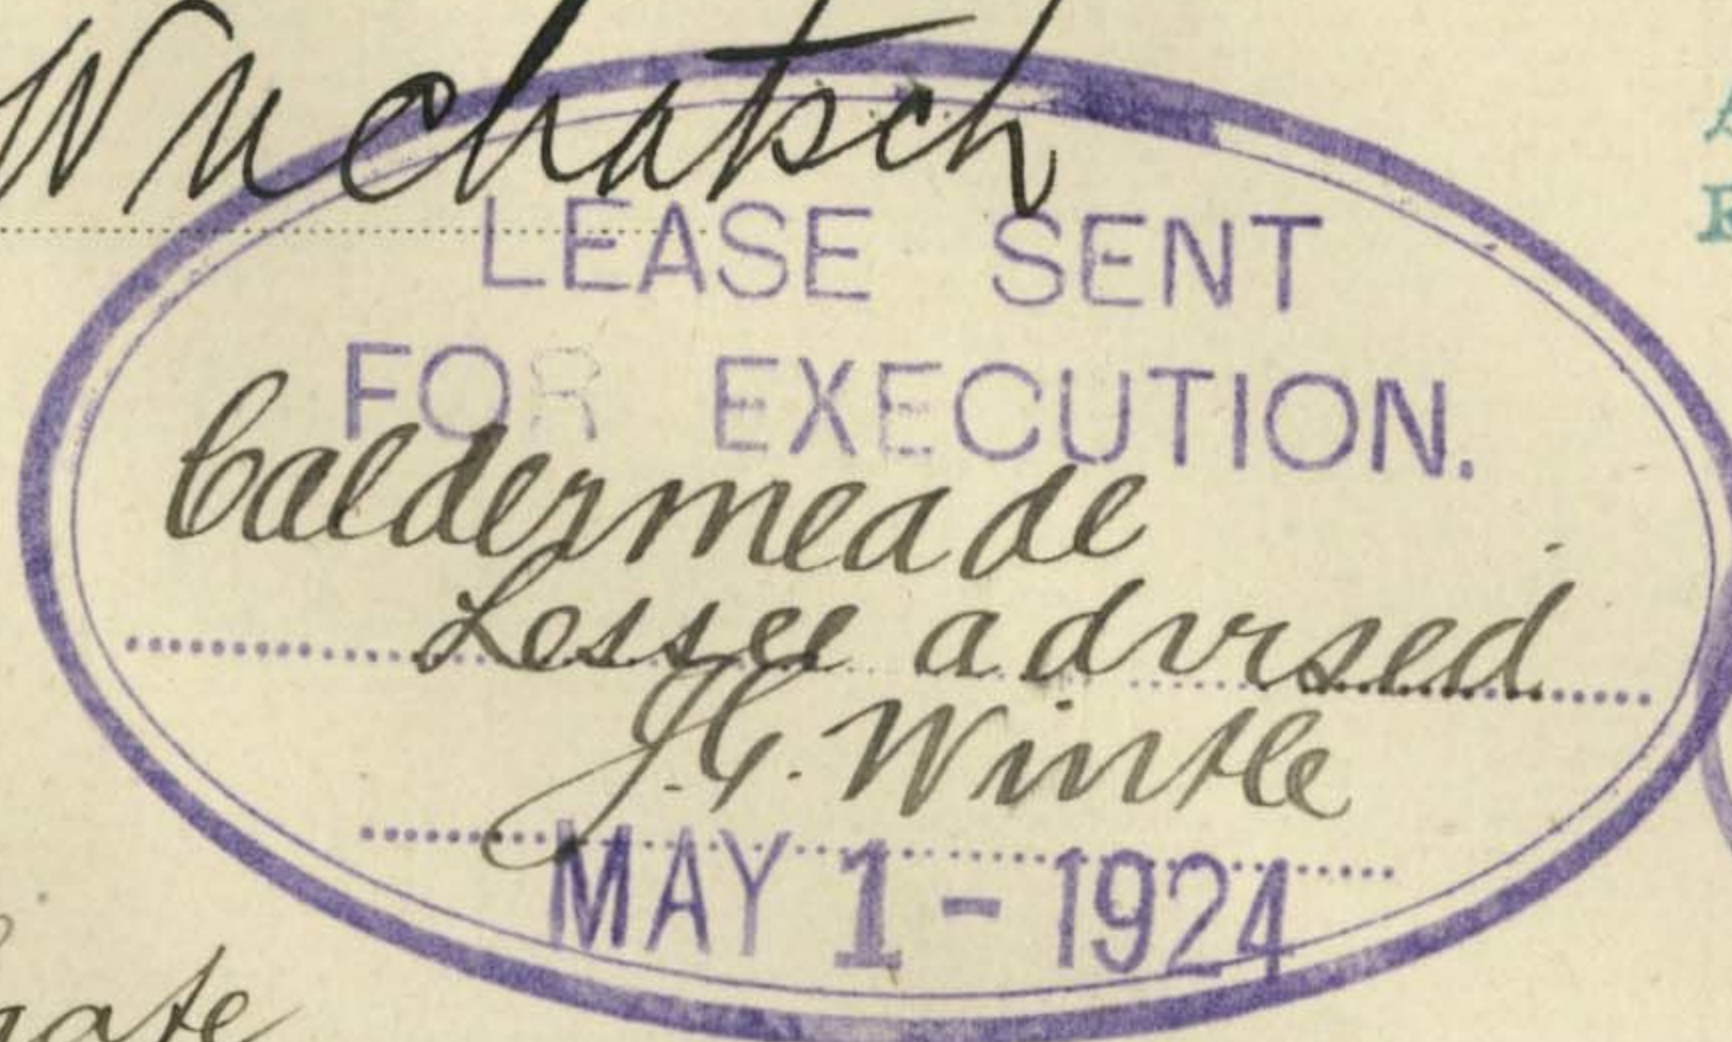 Wuchatsch
LEASE SENT
FOR EXECUTION.
Caldermeade
Lessee advised
J.G. Wintle
MAY 1 - 1924